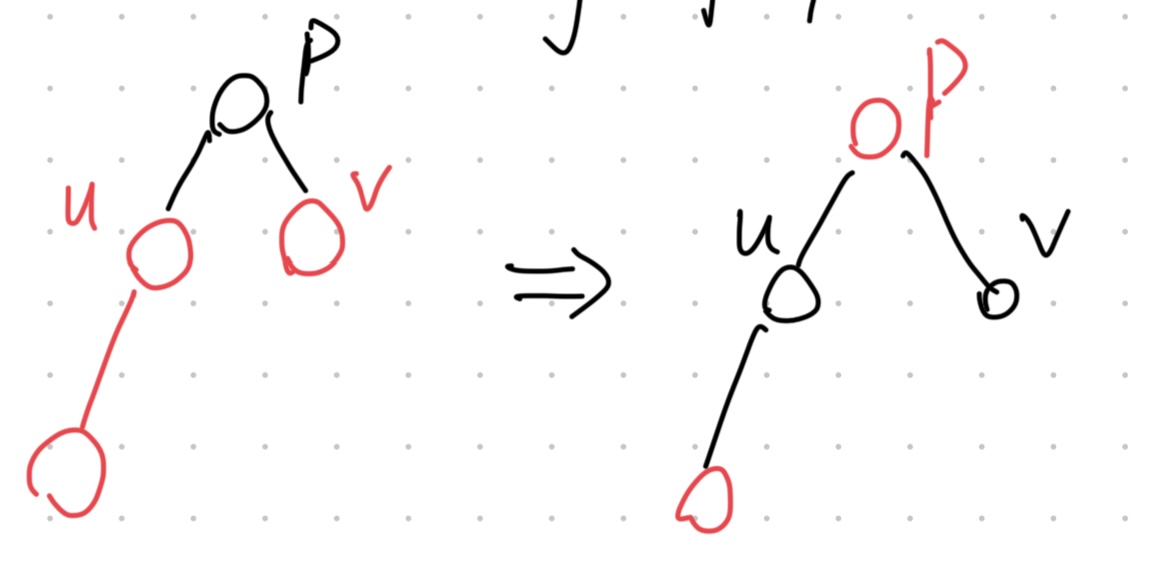 P
u
v
⇒
P
u
v